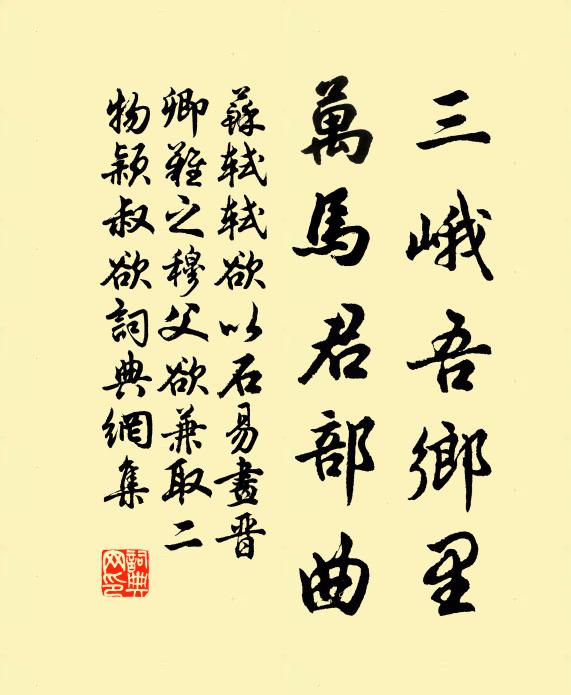 三峨吾鄉里
萬馬君部曲
蘇軾軾欲以石易畫晋
卿難之穆父欲兼取二
物颖叔欲詞典網集
詞典
网印